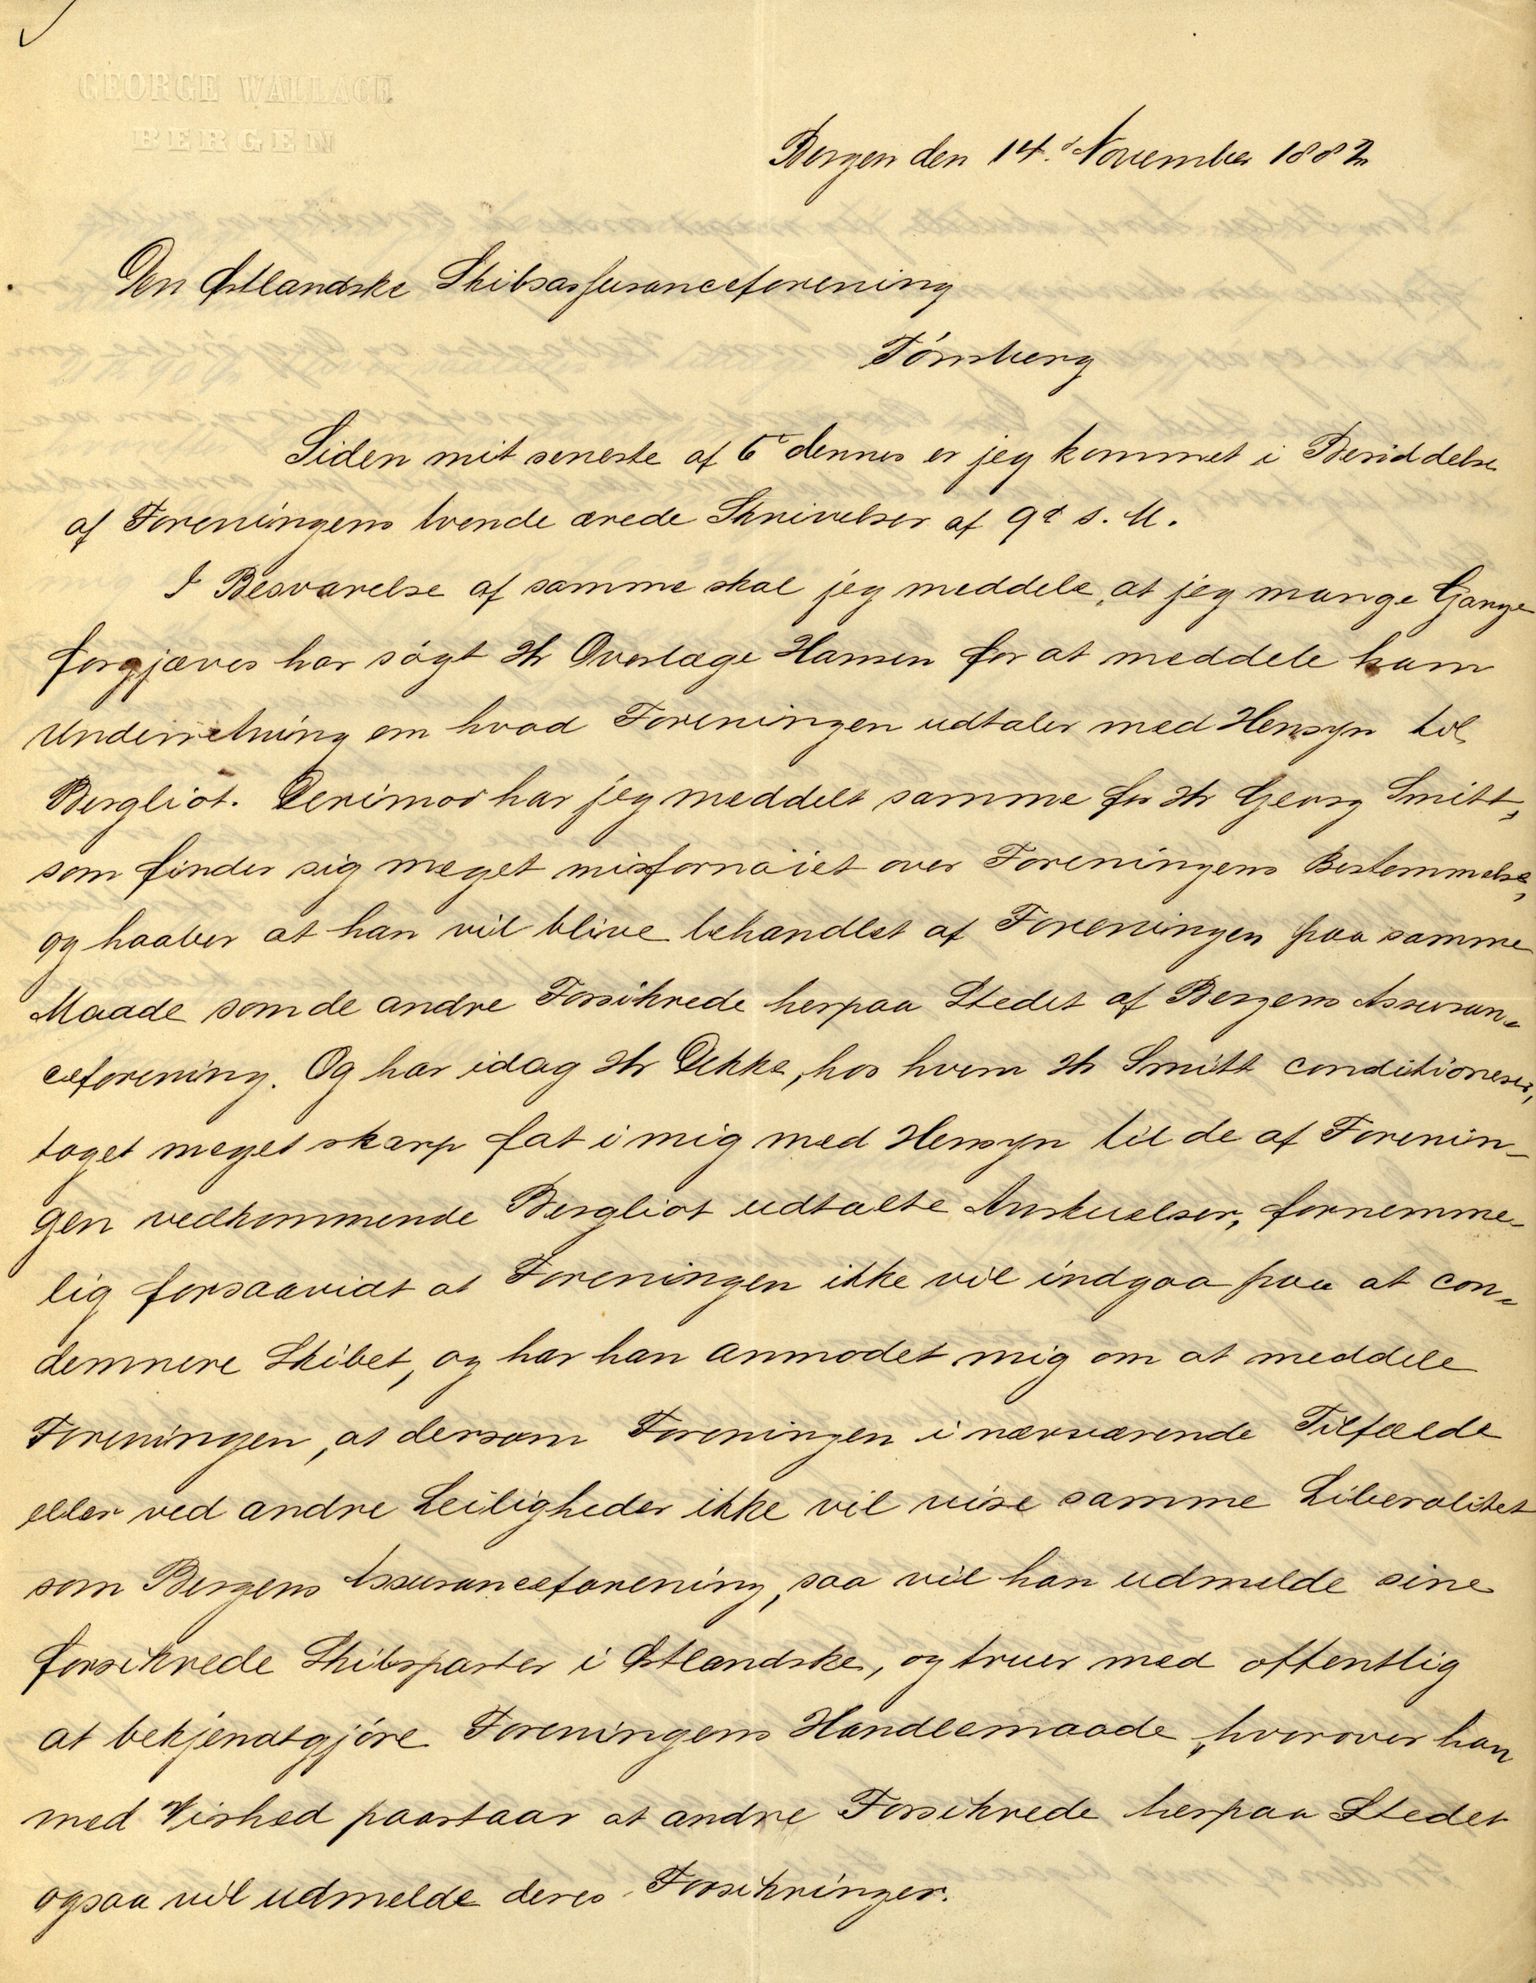 GEORGE WALLACH
BERGEN
Bergen den 14.d November 1882
Den Østlandske Skibsassuranceforening
Tønsberg
Siden mit seneste af 6 dennes er jeg kommet i Besiddelse
af Foreningens tvende ærede Skrivelser af 9d s. M.
I Besvarelse af samme skal jeg meddele, at jeg mange Gange
forgjæves har søgt Hr Overlæge Hansen for at meddele ham
Underretning om hvad Foreningen udtaler med Hensyn til
Bergliot. Derimod har jeg meddelt samme for Hr Georg Smitt,
som finder sig meget misfornøiet over Foreningens Bestemmelse,
og haaber at han vil blive behandlet af Foreningen paa samme
Maade som de andre Forsikrede herpaa Stedet af Bergens Assuran-
ceforening. Og har idag Hr Dekke, hos hvem Hr Smitt conditionerer,
taget meget skarp fat i mig med Hensyn til de af Forenin-
gen vedkommende Bergliot udtalte Anskuelser, fornemme-
lig forsaavidt at Foreningen ikke vil indgaa paa at con-
demnere Skibet, og har han anmodet mig om at meddele
Foreningen, at dersom Foreningen i nærværende Tilfælde
eller ved andre Leiligheder ikke vil vise samme Liberalitet
som Bergens Assuranceforening, saa vil han udmelde sine
forsikrede Skibsparter i Østlandske, og truer med offentlig
at bekjendtgjøre Foreningens Handlemaade, hvorover han
med Vished paastaar at andre Forsikrede herpaa Stedet
ogsaa vil udmelde deres Forsikringer.